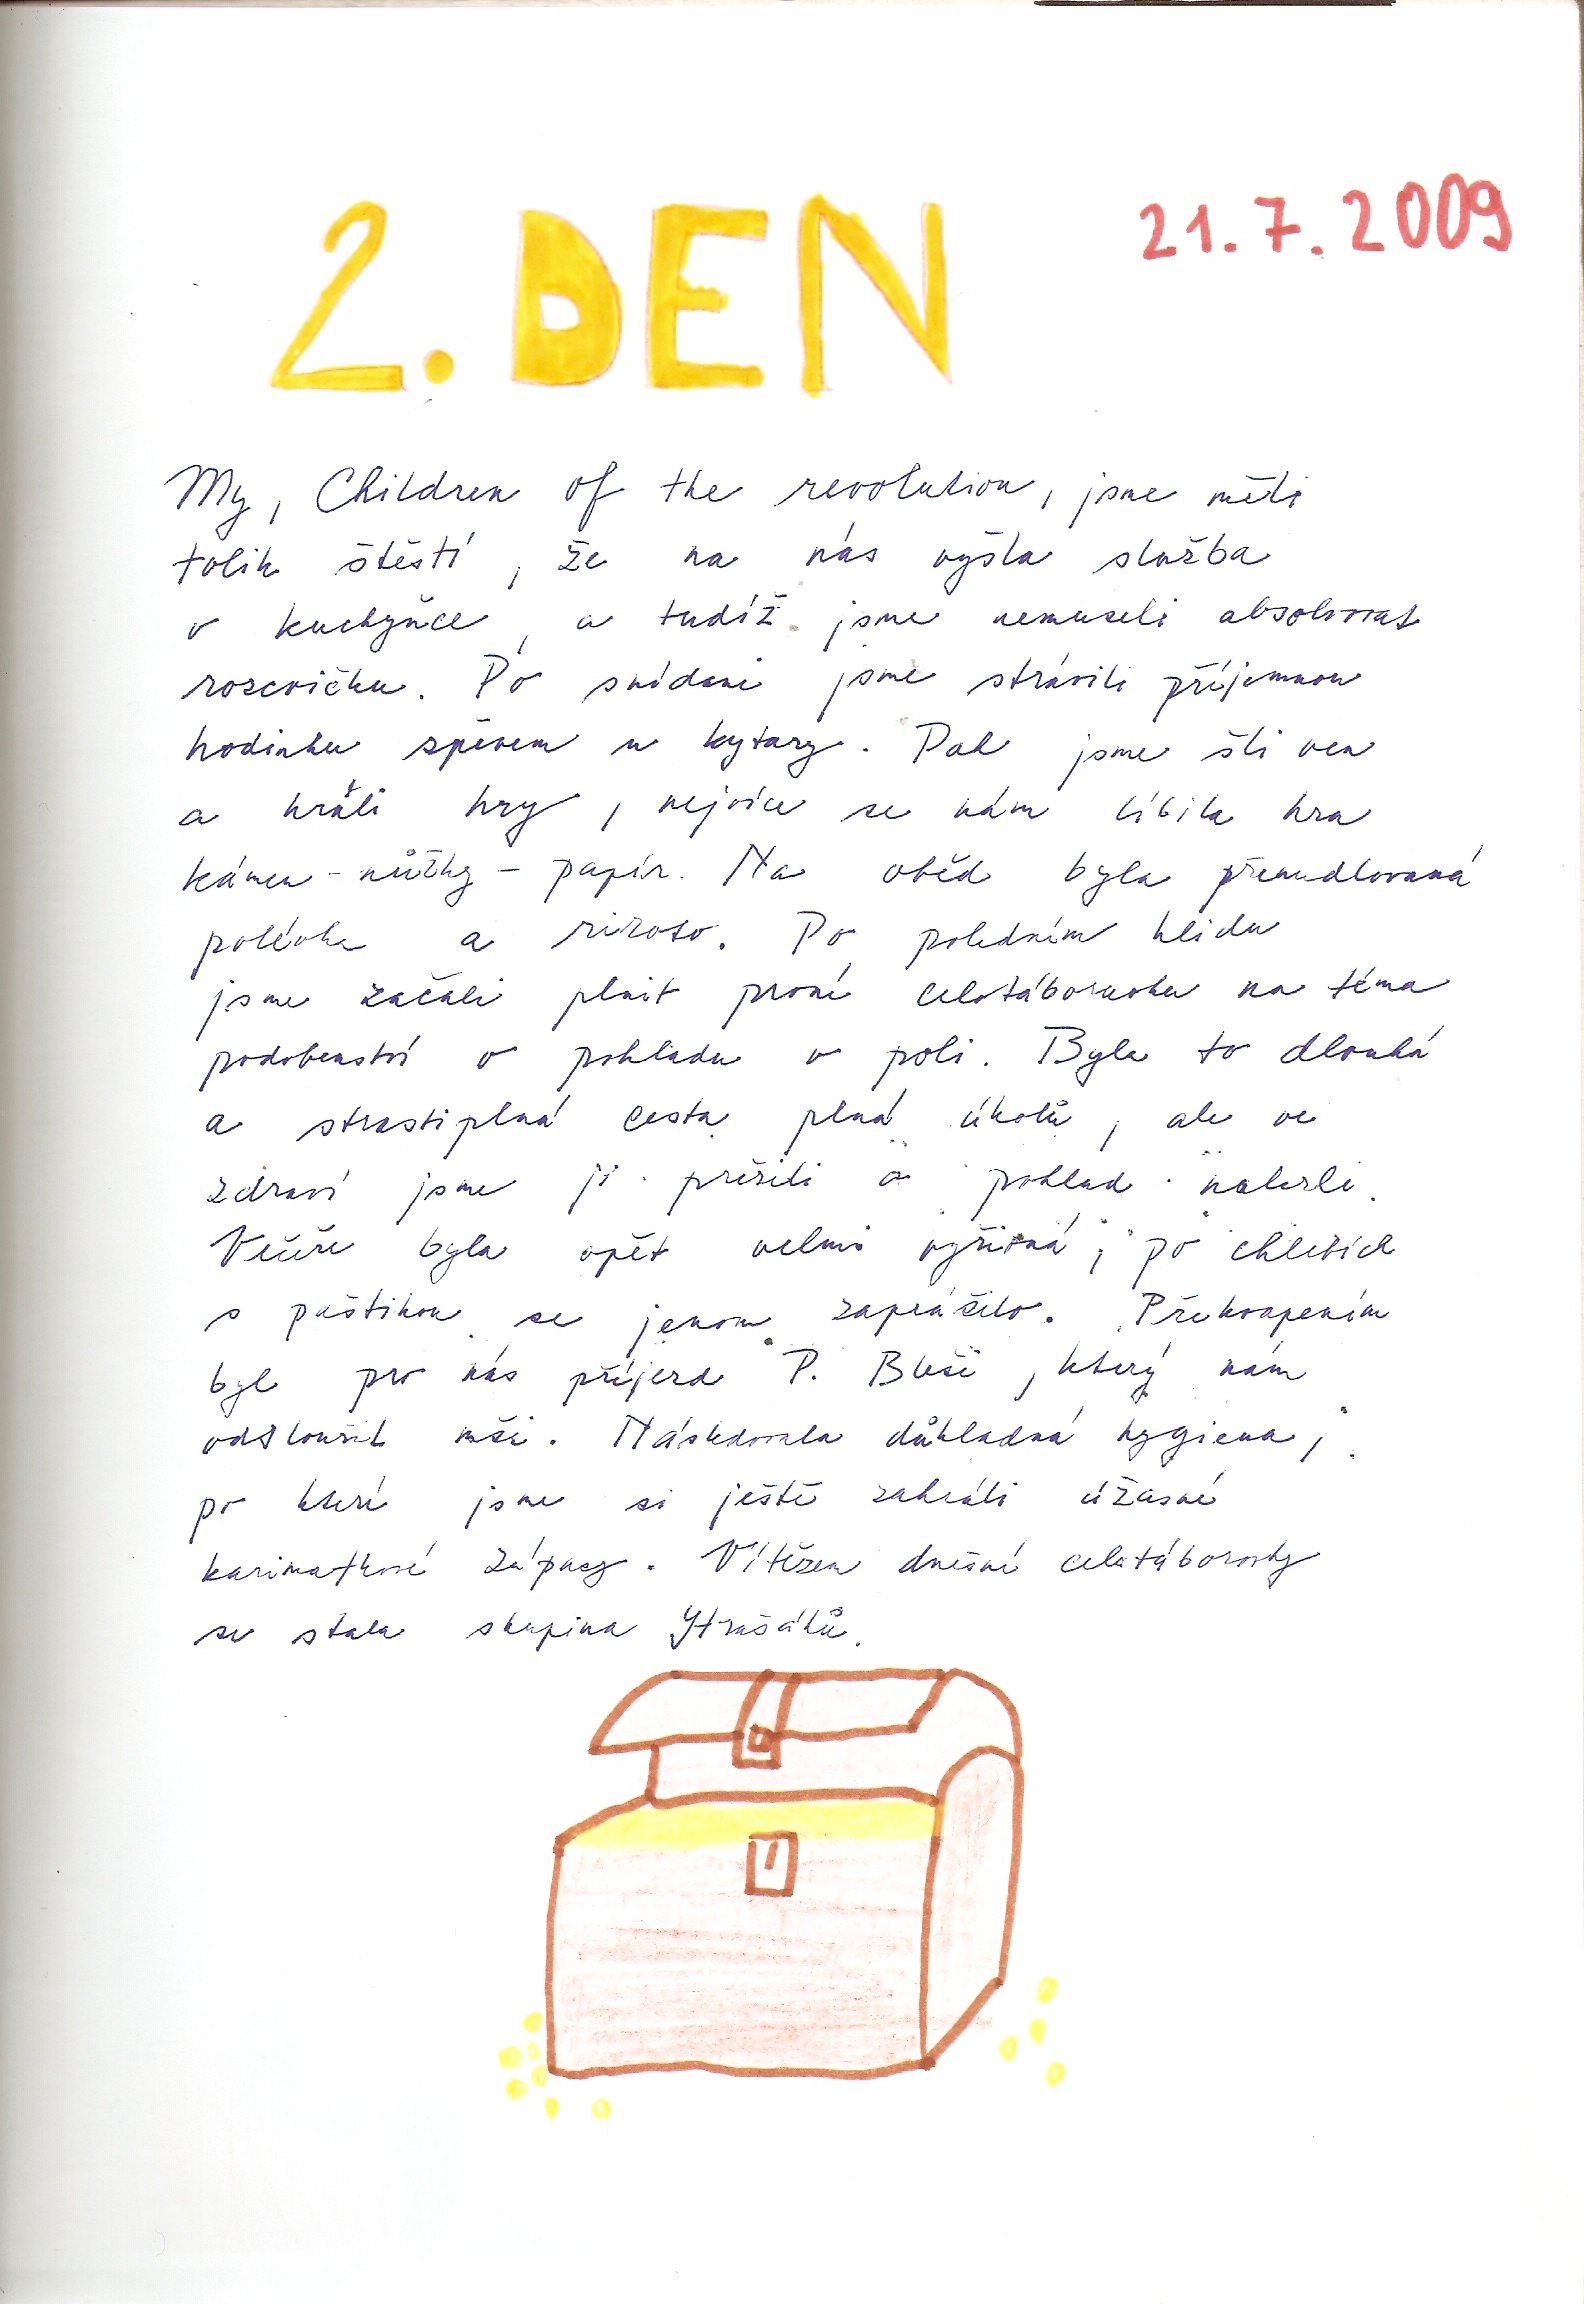 2. DEN
21.7.2009
My, Children of the revolution, jsme měli
tolik štěstí, že na nás vyšla služba
v kuchyňce, a tudíž jsme nemuseli absolvovat
rozcvičku. Po snídani jsme strávili příjemnou
hodinku zpěvem u kytary. Pak jsme šli ven
a hráli hry, nejvíce se nám líbila hra
kámen - nůžky - papír. Na oběd byla přenudlovaná
polévka a rizoto. Po poledním klidu
jsme začali plnit první celotáborovku na téma
podobenství o pokladu v poli. Byla to dlouhá
a strastiplná cesta plná úkolů, ale ve
zdraví jsme ji přežili a poklad nalezli.
Večeře byla opět velmi vyživná, po chlebích
s paštikou se jenom zaprášilo. Překvapením
byl pro nás příjezd P. Blíši, který nám
odsloužil mši. Následovala důkladná hygiena,
po které jsme si ještě zahráli úžasné
karimatkové zápasy. Vítězem dnešní celotáborovky
se stala skupina Ztrašáků.